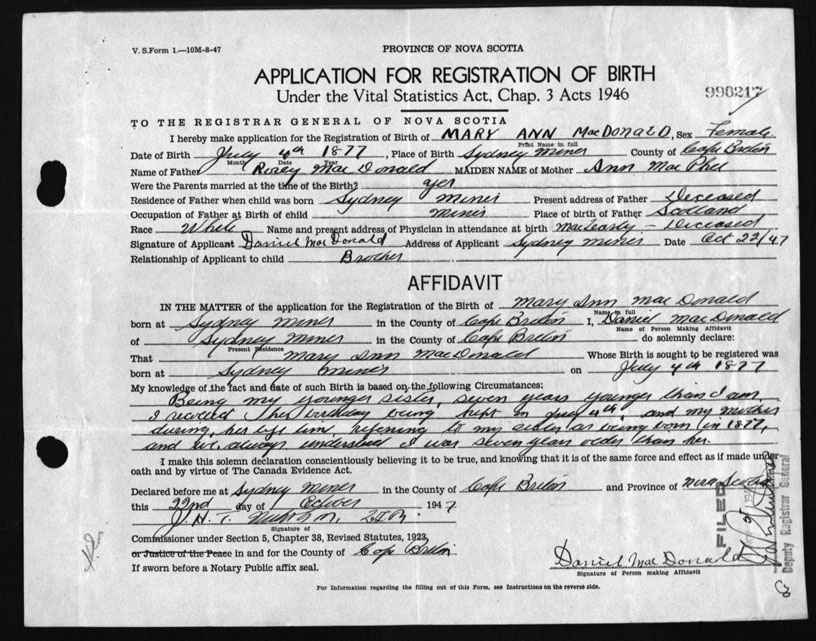 V. S. Form 1.—10M-8-47
PROVINCE OF NOVA SCOTIA
APPLICATION FOR REGISTRATION OF BIRTH
Under the Vital Statistics Act, Chap. 3 Acts 1946
990217
TO THE REGISTRAR GENERAL OF NOVA SCOTIA
I hereby make application for the Registration of Birth of MARY ANN MacDONALD, Sex Female
Print Name in full
Date of Birth July 4th 1877, Place of Birth Sydney Mines County of Cape Breton
Month Date Year
Name of Father Rorey MacDonald MAIDEN NAME of Mother Ann MacPhee
Were the Parents married at the time of the Birth? yes
Residence of Father when child was born Sydney Mines Present address of Father Deceased
Occupation of Father at Birth of child Miner Place of birth of Father Scotland
Race White Name and present address of Physician in attendance at birth – Deceased
Signature of Applicant Daniel MacDonald Address of Applicant Sydney Mines Date Oct 22/47
Relationship of Applicant to child Brother
AFFIDAVIT
IN THE MATTER of the application for the Registration of the Birth of Mary Ann MacDonald
Name in full
born at Sydney Mines in the County of Cape Breton I, Daniel MacDonald
Name of Person Making Affidavit
of Sydney Mines in the County of Cape Breton do solemnly declare:
Present Residence
That Mary Ann MacDonald Whose Birth is sought to be registered was
born at Sydney Mines on July 4th 1877
My knowledge of the fact and date of such Birth is based on the following Circumstances:
Being my younger sister, seven years younger than I am.
I recollect her birthday being kept on July 4th, and my mother
during her life time, refering to my sister as being born in 1877,
and we always understood I was seven years older than her.
I make this solemn declaration conscientiously believing it to be true, and knowing that it is of the same force and effect as if made under
oath and by virtue of The Canada Evidence Act.
Declared before me at Sydney Mines in the County of Cape Breton and Province of Nova Scotia
this 22nd day of October 1947
J. H. T.
Signature of
Commissioner under Section 5, Chapter 38, Revised Statutes, 1923,
or Justice of the Peace in and for the County of Cape Breton
If sworn before a Notary Public affix seal.
Daniel MacDonald
Signature of Person making Affidavit
FILED
Deputy Registrar General
For Information regarding the filling out of this Form, see Instructions on the reverse side.